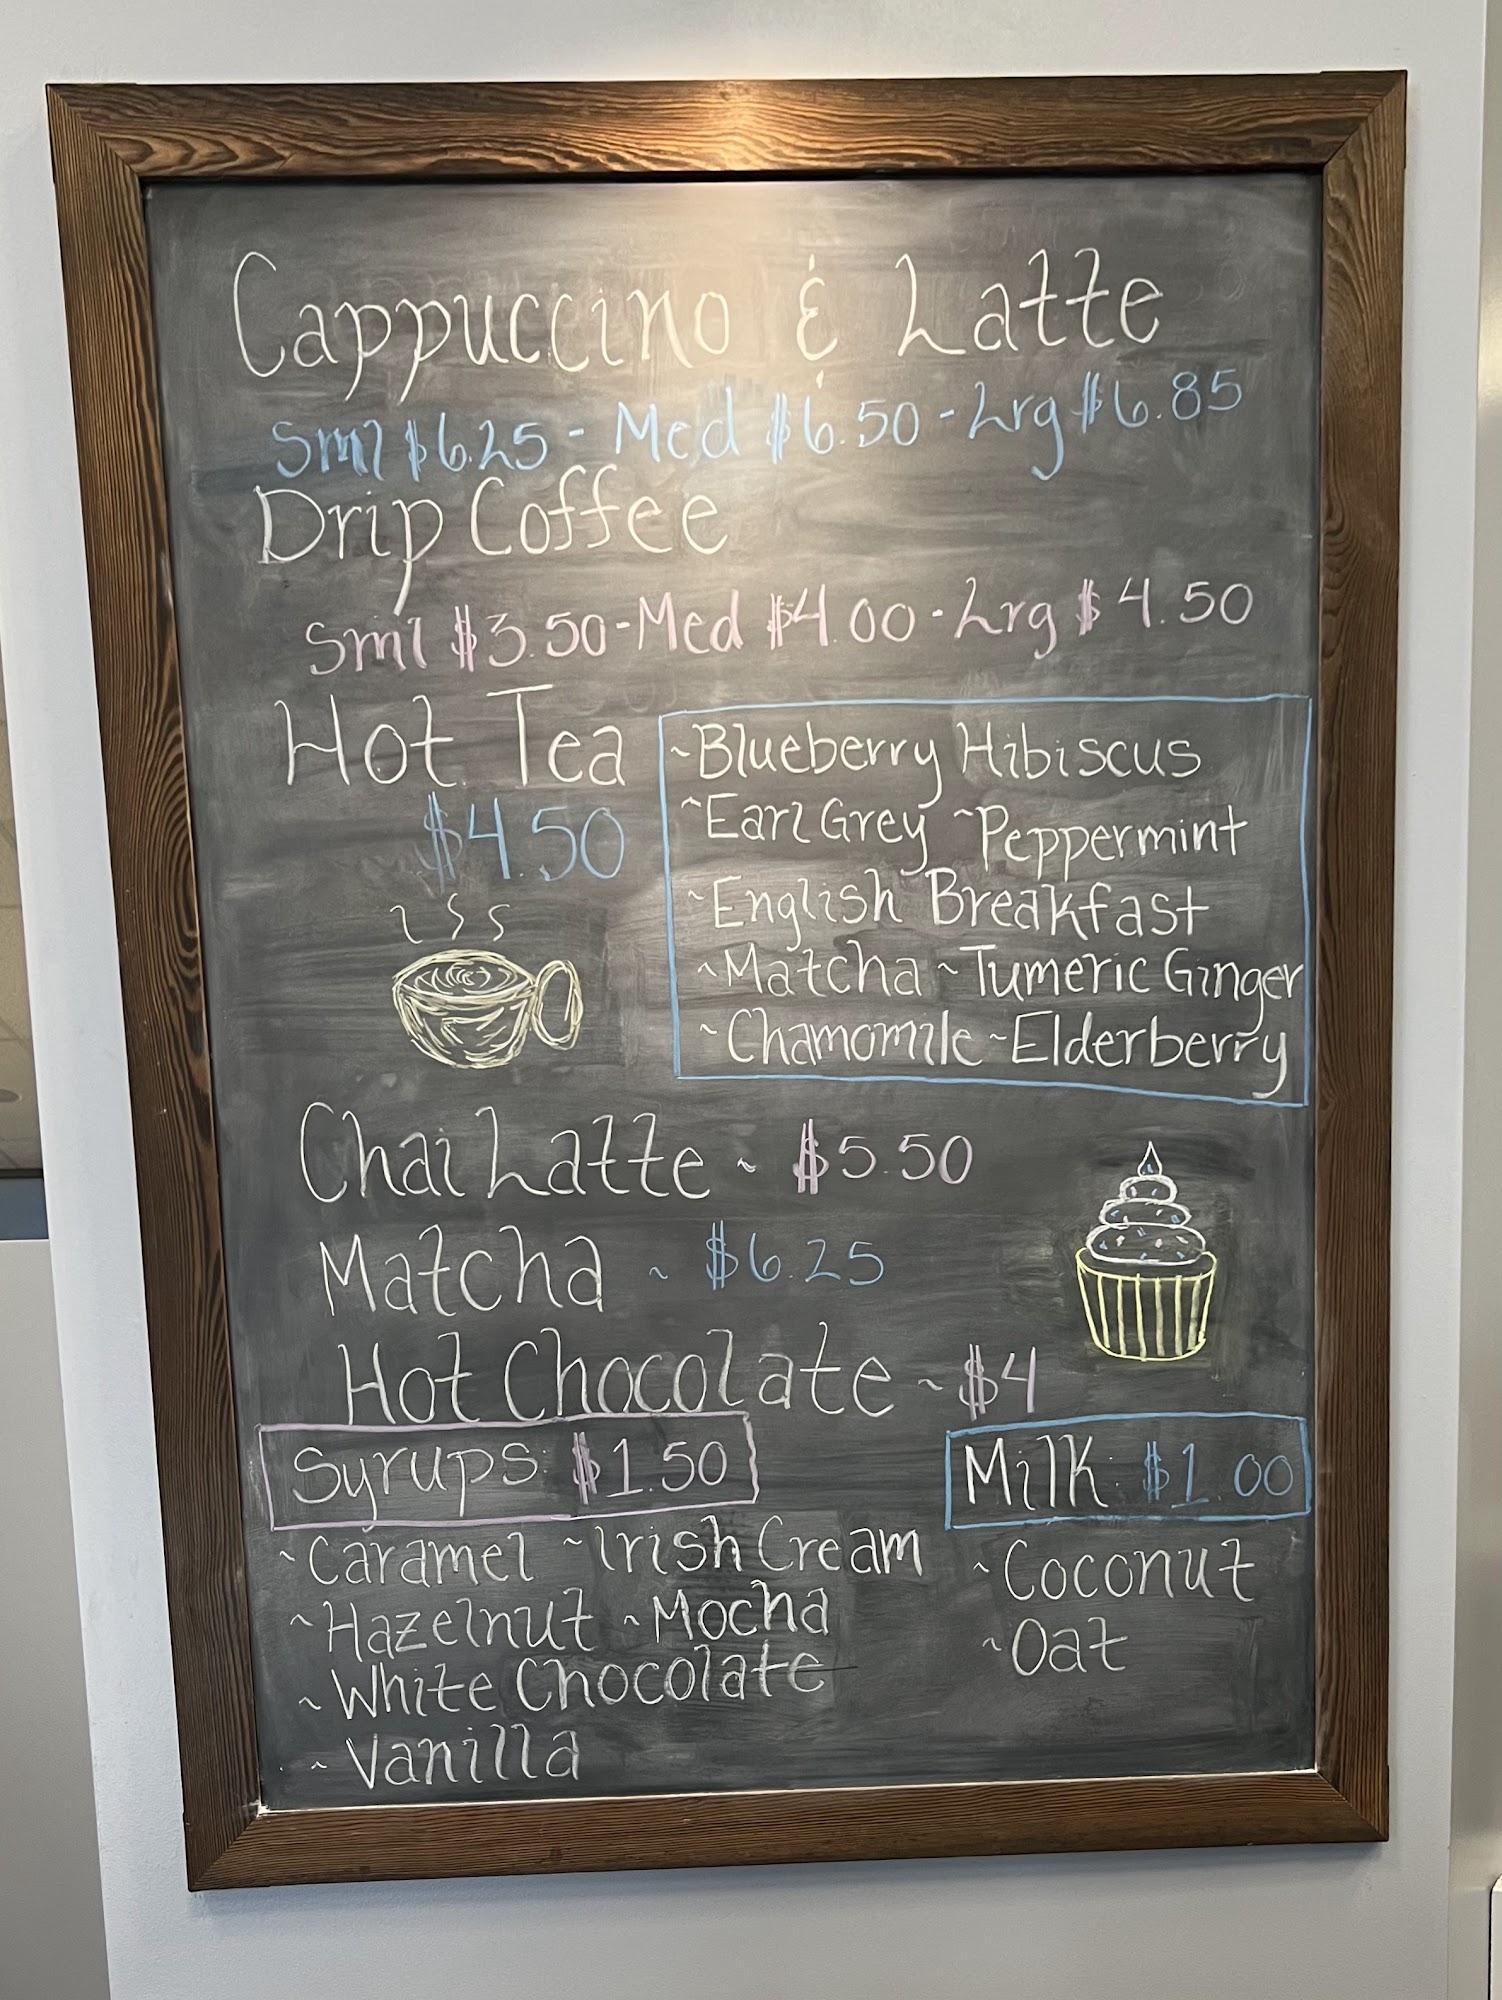 Cappuccino & Latte
Sml $6.25 - Med $6.50 - Lrg $6.85
Drip Coffee
Sml $3.50 - Med $4.00 - Lrg $4.50
Hot Tea
$4.50
~Blueberry Hibiscus
~Earl Grey ~Peppermint
~English Breakfast
~Matcha ~Tumeric Ginger
~Chamomile ~Elderberry
Chai Latte ~ $5.50
Matcha ~ $6.25
Hot Chocolate ~ $4
Syrups: $1.50
~Caramel ~Irish Cream
~Hazelnut ~Mocha
~White Chocolate
~Vanilla
Milk: $1.00
~Coconut
~Oat